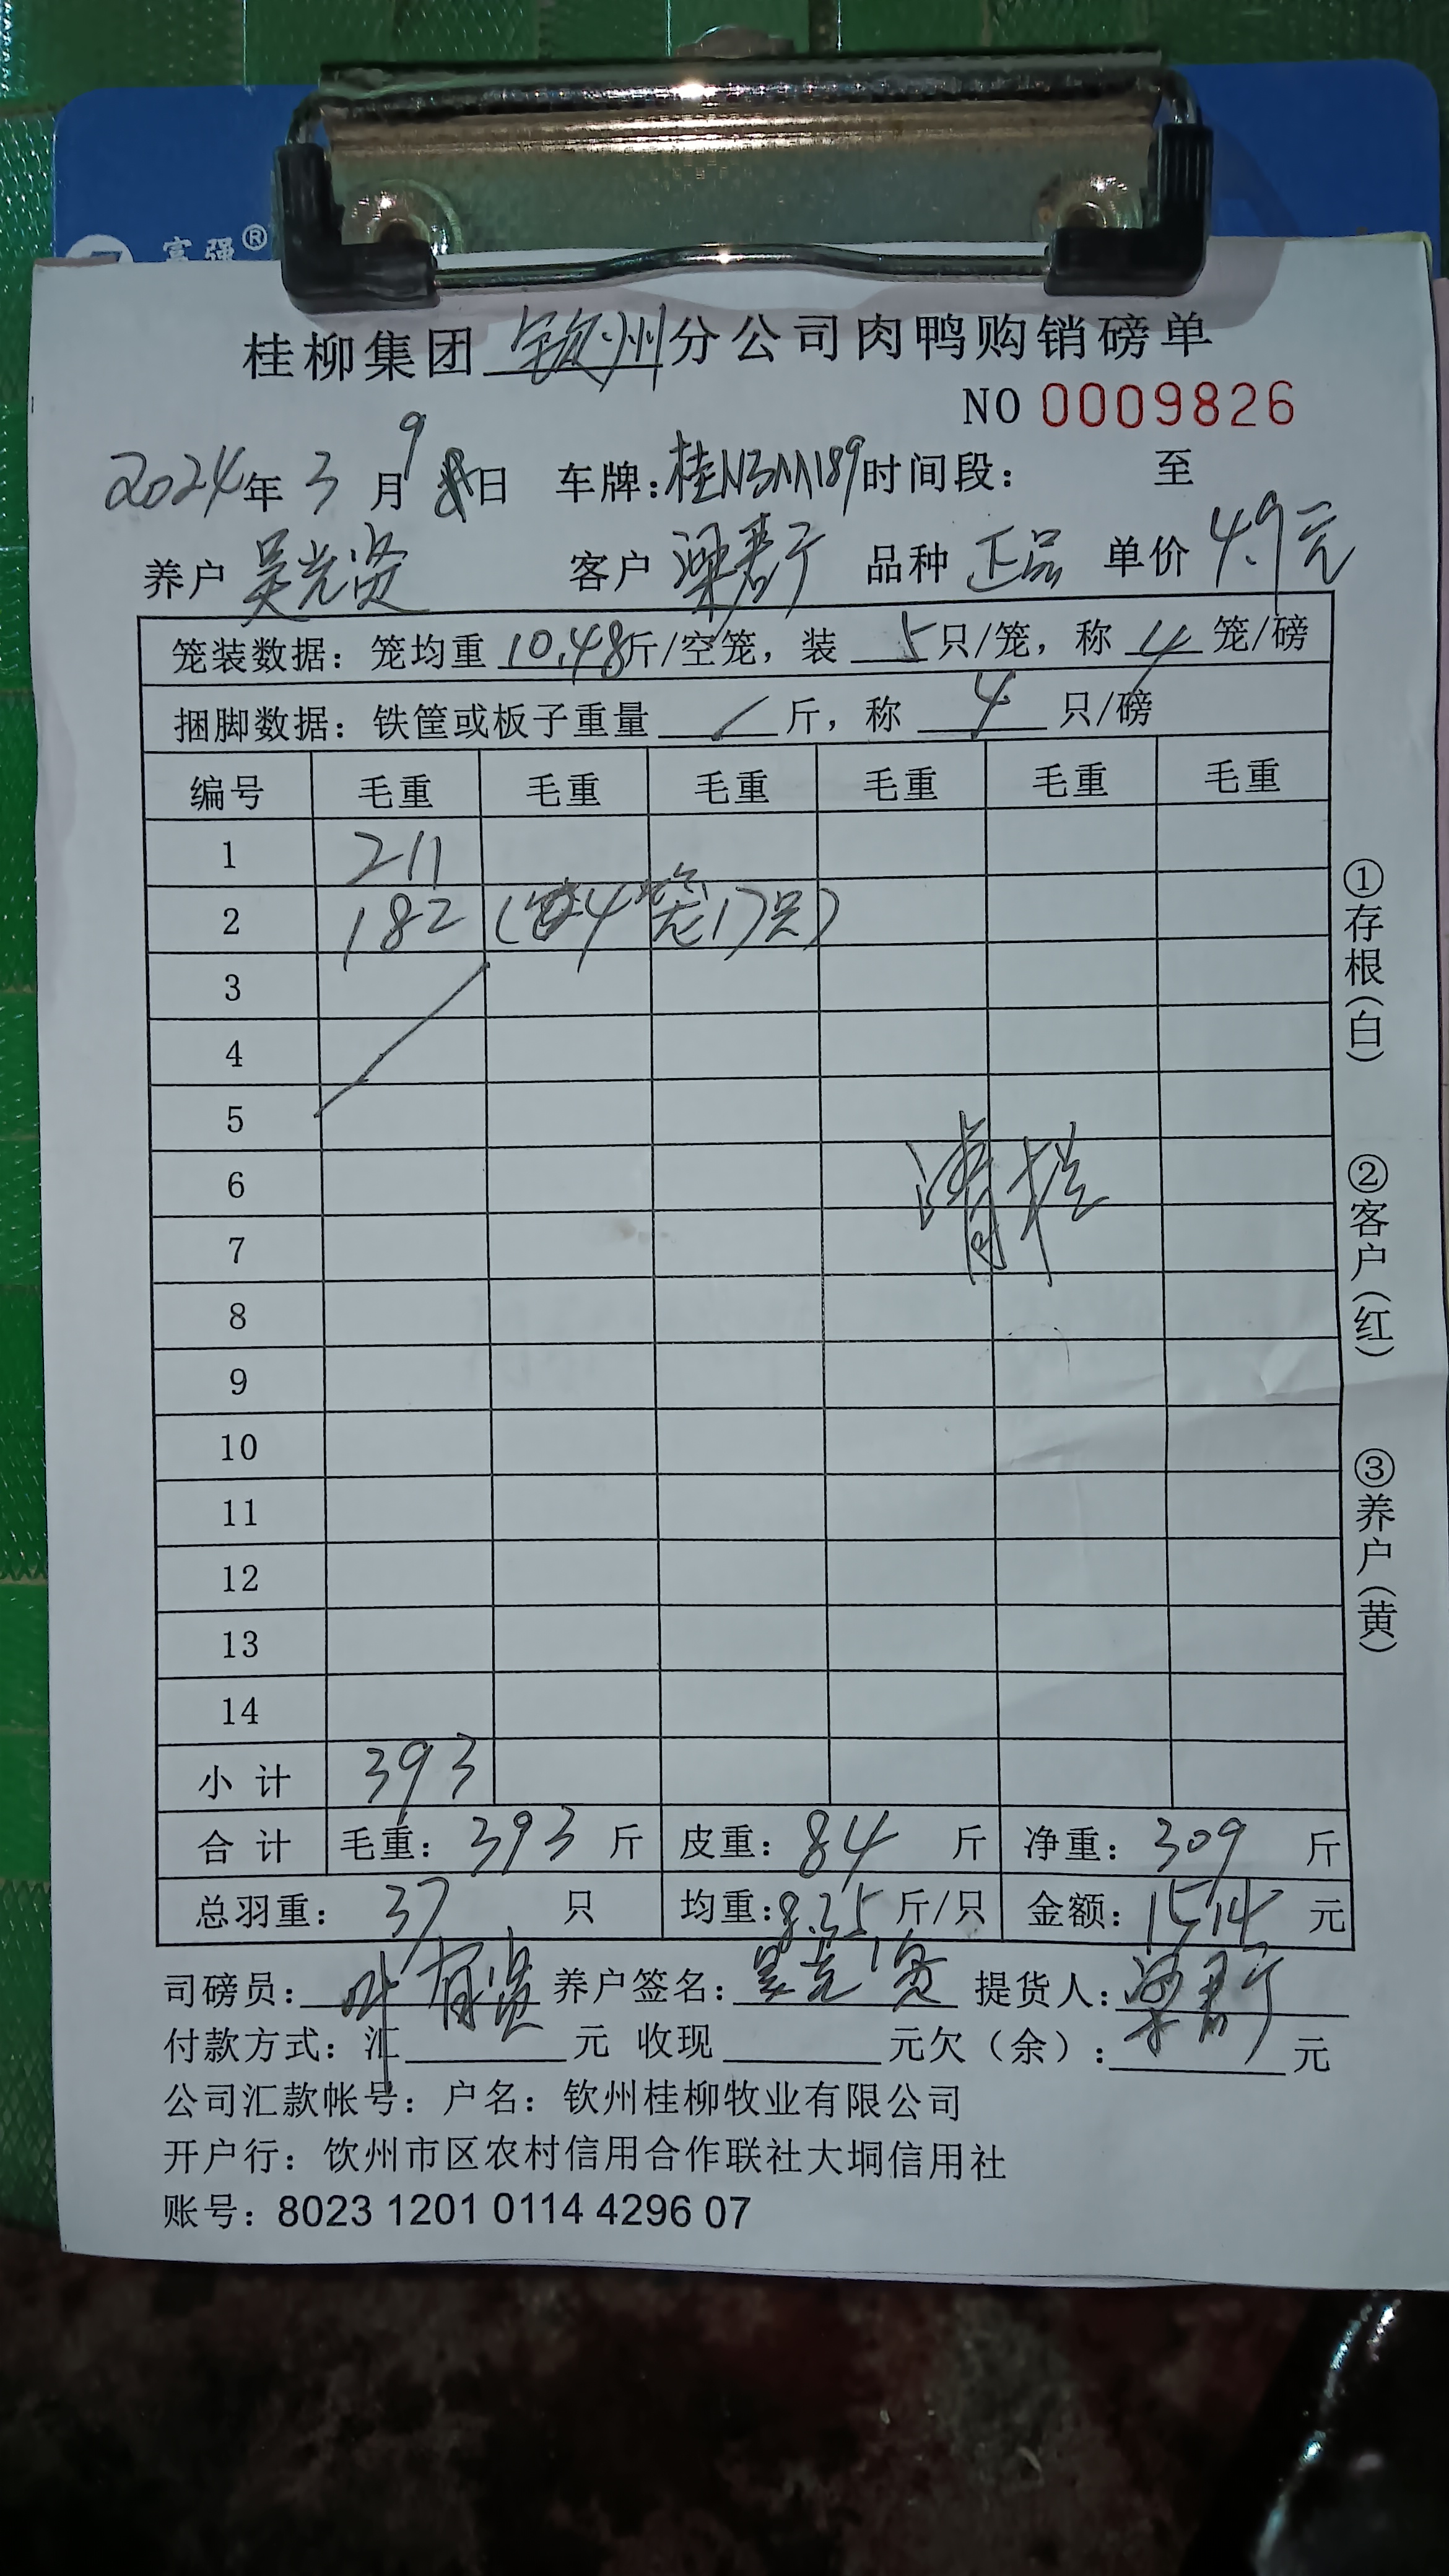 富强®
桂柳集团 钦州 分公司肉鸭购销磅单
NO 0009826
2024年 3 月 9日 车牌:桂N3M189 时间段: 至
养户 吴光贤 客户 梁君宁 品种 正品 单价 4.9元
笼装数据: 笼均重 10.48 斤/空笼, 装 5 只/笼, 称 4 笼/磅
捆脚数据: 铁筐或板子重量 / 斤, 称 4 只/磅
编号 毛重 毛重 毛重 毛重 毛重 毛重
1 211
2 182 (4笼17只)
3
4
5
6
7
8
9
10
11
12
13
14
小计 393
合计 毛重: 393 斤 皮重: 84 斤 净重: 309 斤
总羽重: 37 只 均重: 8.35 斤/只 金额: 1514 元
司磅员: 叶有贤 养户签名: 吴光贤 提货人: 梁君宁
付款方式: 汇 元 收现 元欠(余): 元
公司汇款帐号: 户名: 钦州桂柳牧业有限公司
开户行: 钦州市区农村信用合作联社大垌信用社
账号: 8023 1201 0114 4296 07
①存根(白)
②客户(红)
③养户(黄)